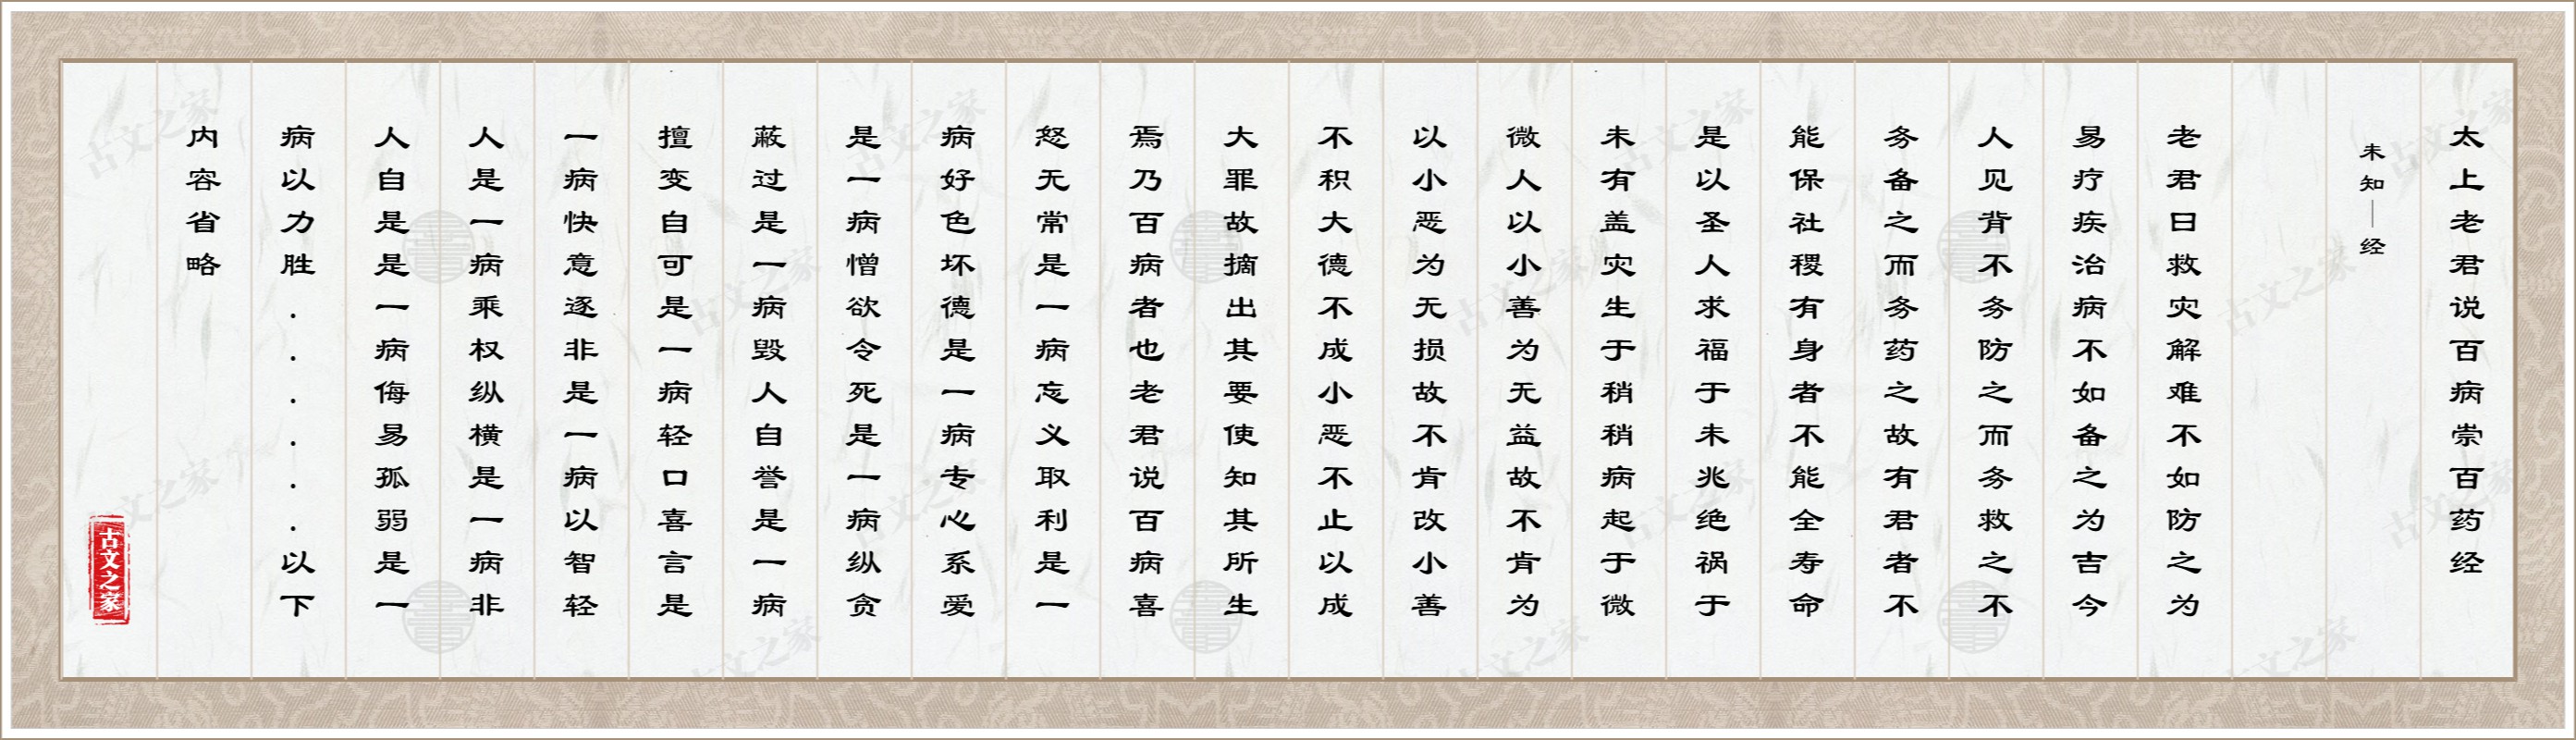 太上老君说百病崇百药经
未知｜经
老君曰救灾解难不如防之为
易疗疾治病不如备之为吉今
人见背不务防之而务救之不
务备之而务药之故有君者不
能保社稷有身者不能全寿命
是以圣人求福于未兆绝祸于
未有盖灾生于稍稍病起于微
微人以小善为无益故不肯为
以小恶为无损故不肯改小善
不积大德不成小恶不止以成
大罪故摘出其要使知其所生
焉乃百病者也老君说百病喜
怒无常是一病忘义取利是一
病好色坏德是一病专心系爱
是一病憎欲令死是一病纵贪
蔽过是一病毁人自誉是一病
擅变自可是一病轻口喜言是
一病快意逐非是一病以智轻
人是一病乘权纵横是一病非
人自是是一病侮易孤弱是一
病以力胜......以下
内容省略
古文之家